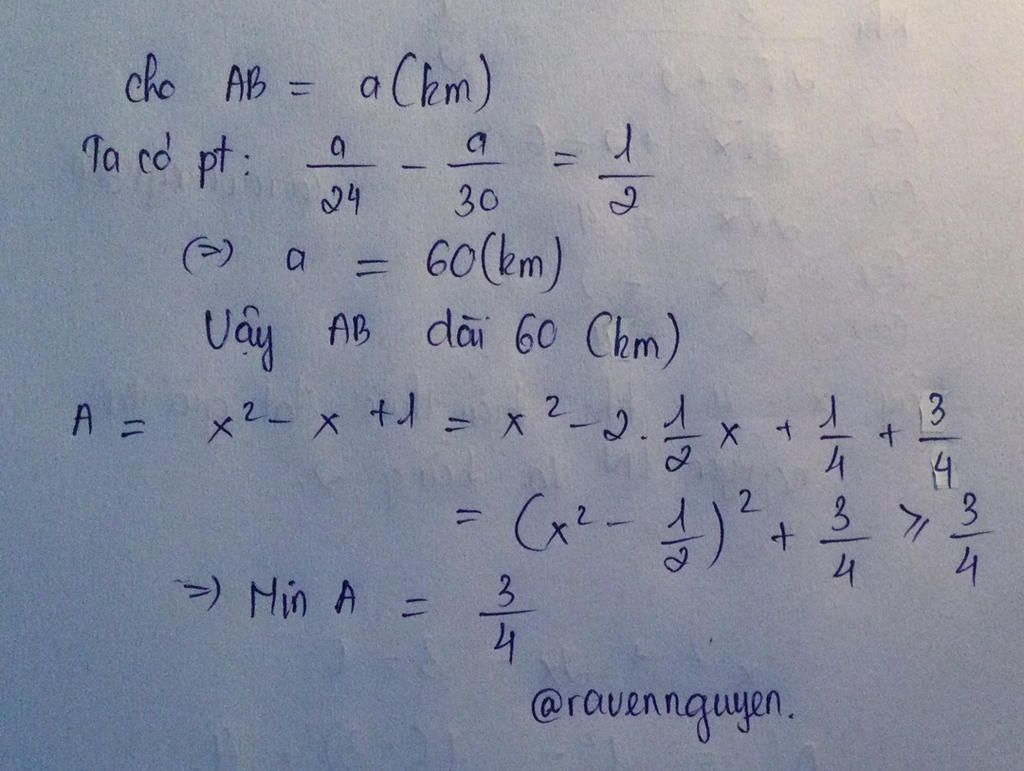 cho AB = a (km)
Ta có pt: a/24 - a/30 = 1/2
(=) a = 60 (km)
Vậy AB dài 60 (km)
A = x² - x + 1 = x² - 2. 1/2 x + 1/4 + 3/4
= (x² - 1/2)² + 3/4 ⩾ 3/4
=) Min A = 3/4
@ravennguyen.